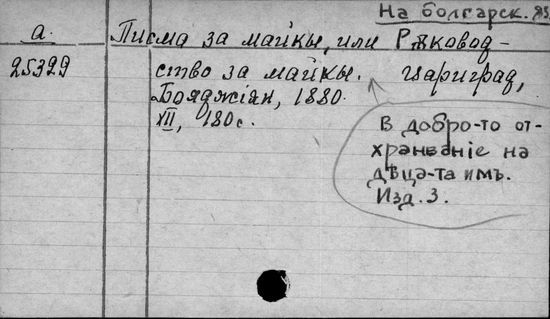 На болгарск. яз
а.
Писма за майкы, или Рѫковод-
25329
ство за майкы. Цариград,
Бояджіян, 1880.
XII, 180 с.
В добро-то от-
хранванiе на
дѣца-та имъ.
Изд. 3.